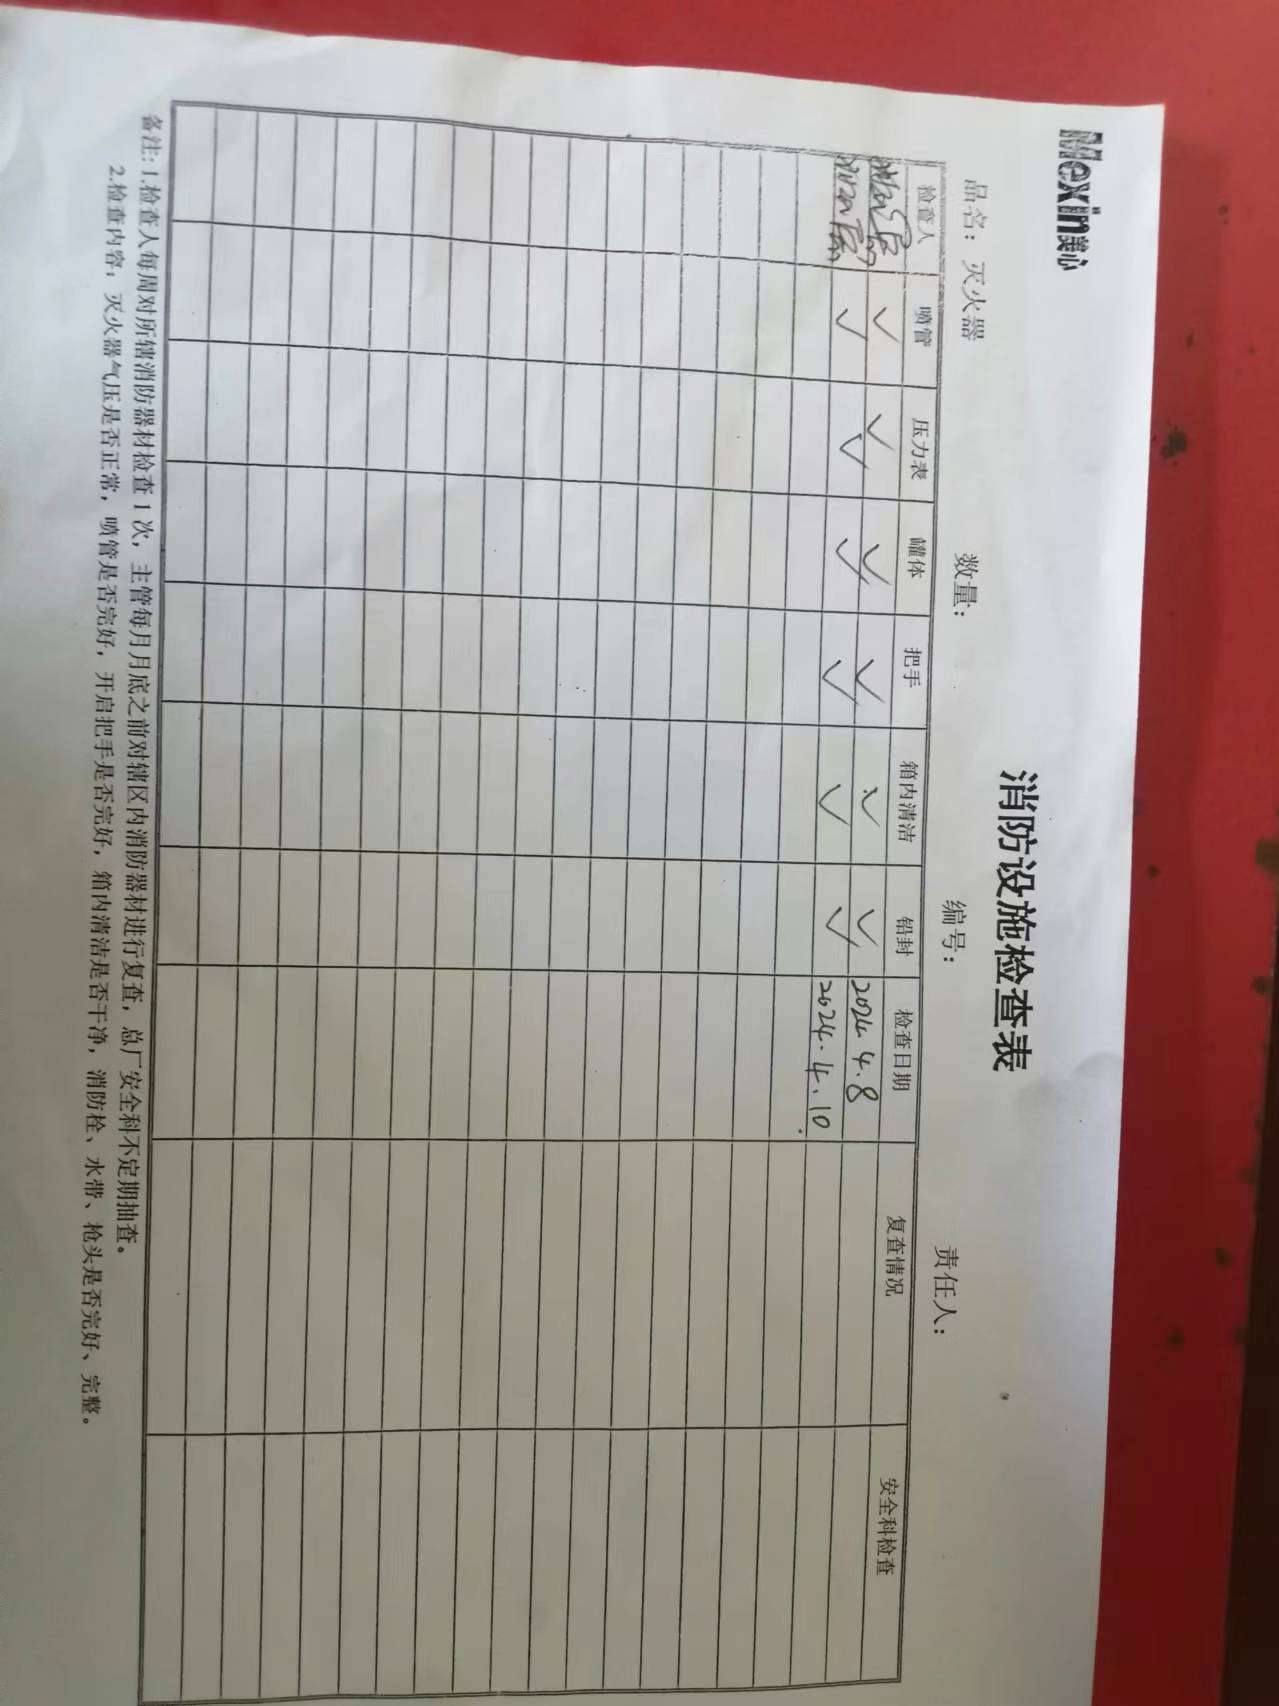 Mexin美心
消防设施检查表
品名：灭火器 数量： 编号： 责任人：
检查人 喷管 压力表 罐体 把手 箱内清洁 铅封 检查日期 复查情况 安全科检查
✓ ✓ ✓ ✓ ✓ ✓ 2024.4.8
✓ ✓ ✓ ✓ ✓ ✓ 2024.4.10.
备注：1.检查人每周对所辖消防器材检查1次，主管每月月底之前对辖区内消防器材进行复查，总厂安全科不定期抽查。
2.检查内容：灭火器气压是否正常，喷管是否完好，开启把手是否完好，箱内清洁是否干净，消防栓、水带、枪头是否完好、完整。